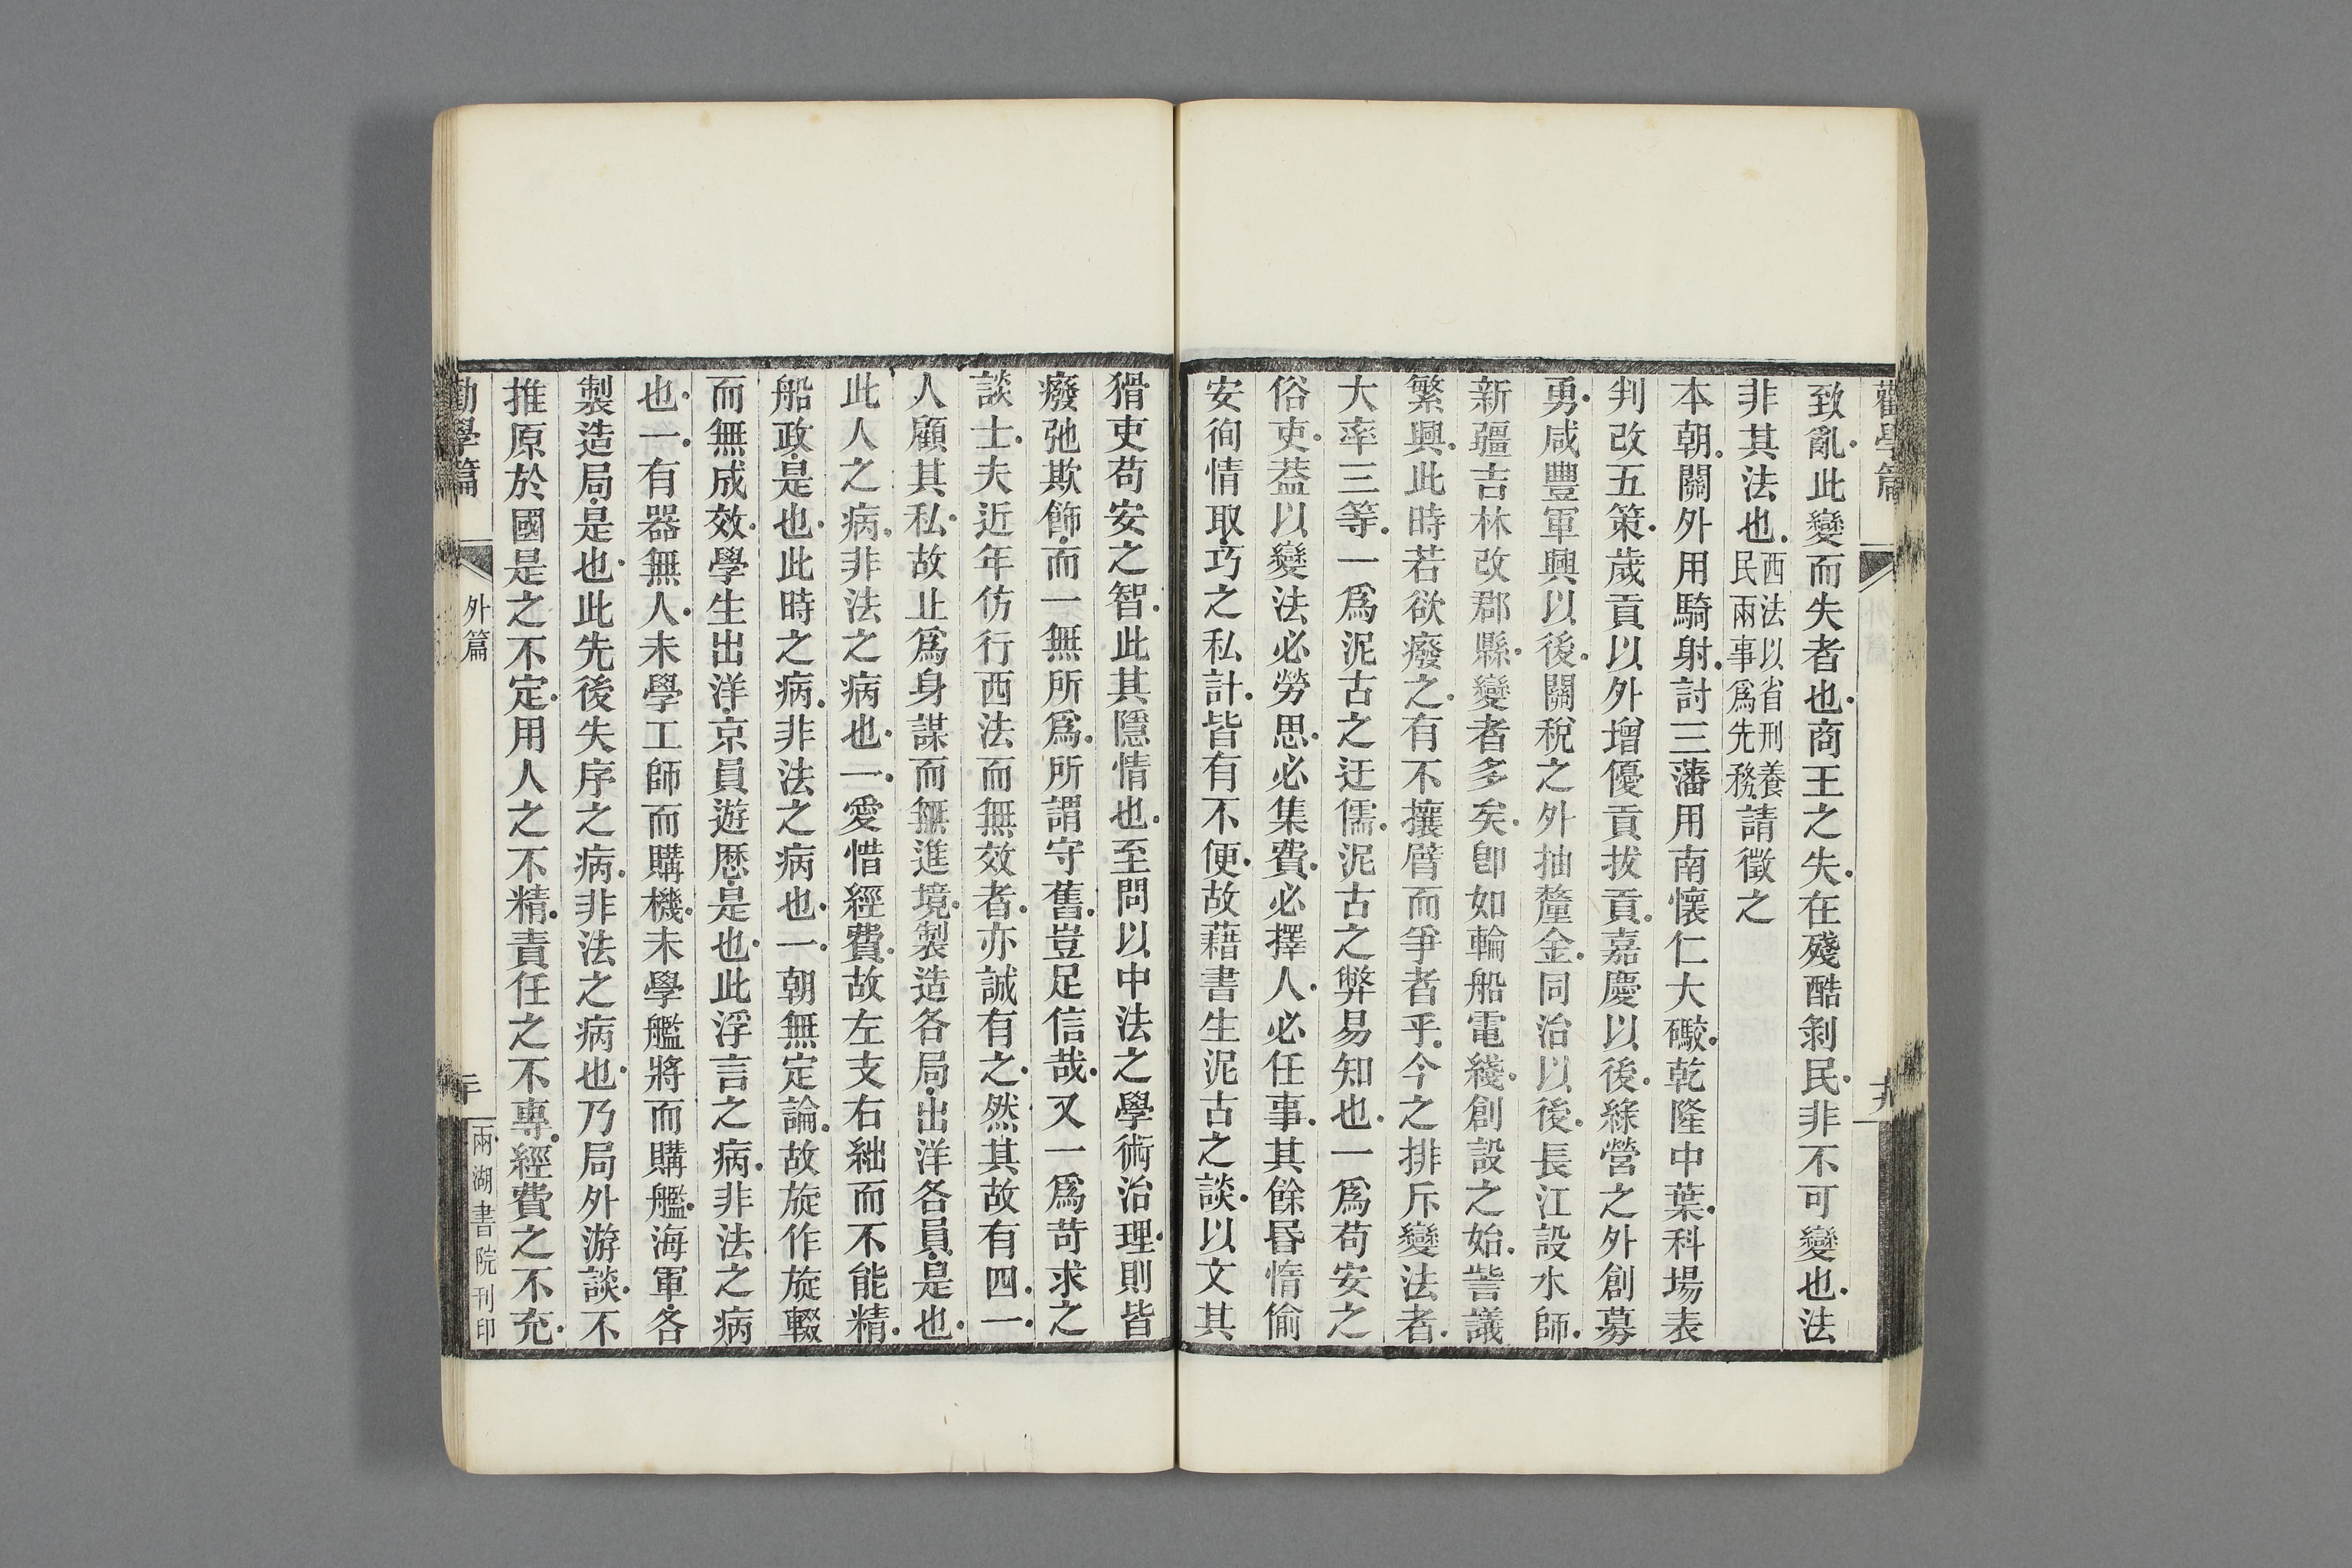 勸學篇
十九
致亂此變而失者也商王之失在殘酷剝民非不可變也法
非其法也西法以省刑養民兩事爲先務請徵之
本朝關外用騎射討三藩用南懷仁大礮乾隆中葉科場表
判改五策歲貢以外增優貢拔貢嘉慶以後綠營之外創募
勇咸豐軍興以後關稅之外抽釐金同治以後長江設水師
新疆吉林改郡縣變者多矣卽如輪船電綫創設之始訾議
繁興此時若欲廢之有不攘臂而爭者乎今之排斥變法者
大率三等一爲泥古之迂儒泥古之弊易知也一爲苟安之
俗吏葢以變法必勞思必集費必擇人必任事其餘昬惰偷
安徇情取巧之私計皆有不便故藉書生泥古之談以文其
猾吏苟安之智此其隱情也至問以中法之學術治理則皆
廢弛欺飾而一無所爲所謂守舊豈足信哉又一爲苛求之
談士夫近年仿行西法而無效者亦誠有之然其故有四一
人顧其私故止爲身謀而無進境製造各局出洋各員是也
此人之病非法之病也一愛惜經費故左支右絀而不能精
船政是也此時之病非法之病也一朝無定論故旋作旋輟
而無成效學生出洋京員遊歷是也此浮言之病非法之病
也一有器無人未學工師而購機未學艦將而購艦海軍各
製造局是也此先後失序之病非法之病也乃局外游談不
推原於國是之不定用人之不精責任之不專經費之不充
勸學篇
外篇
二十
兩湖書院刊印